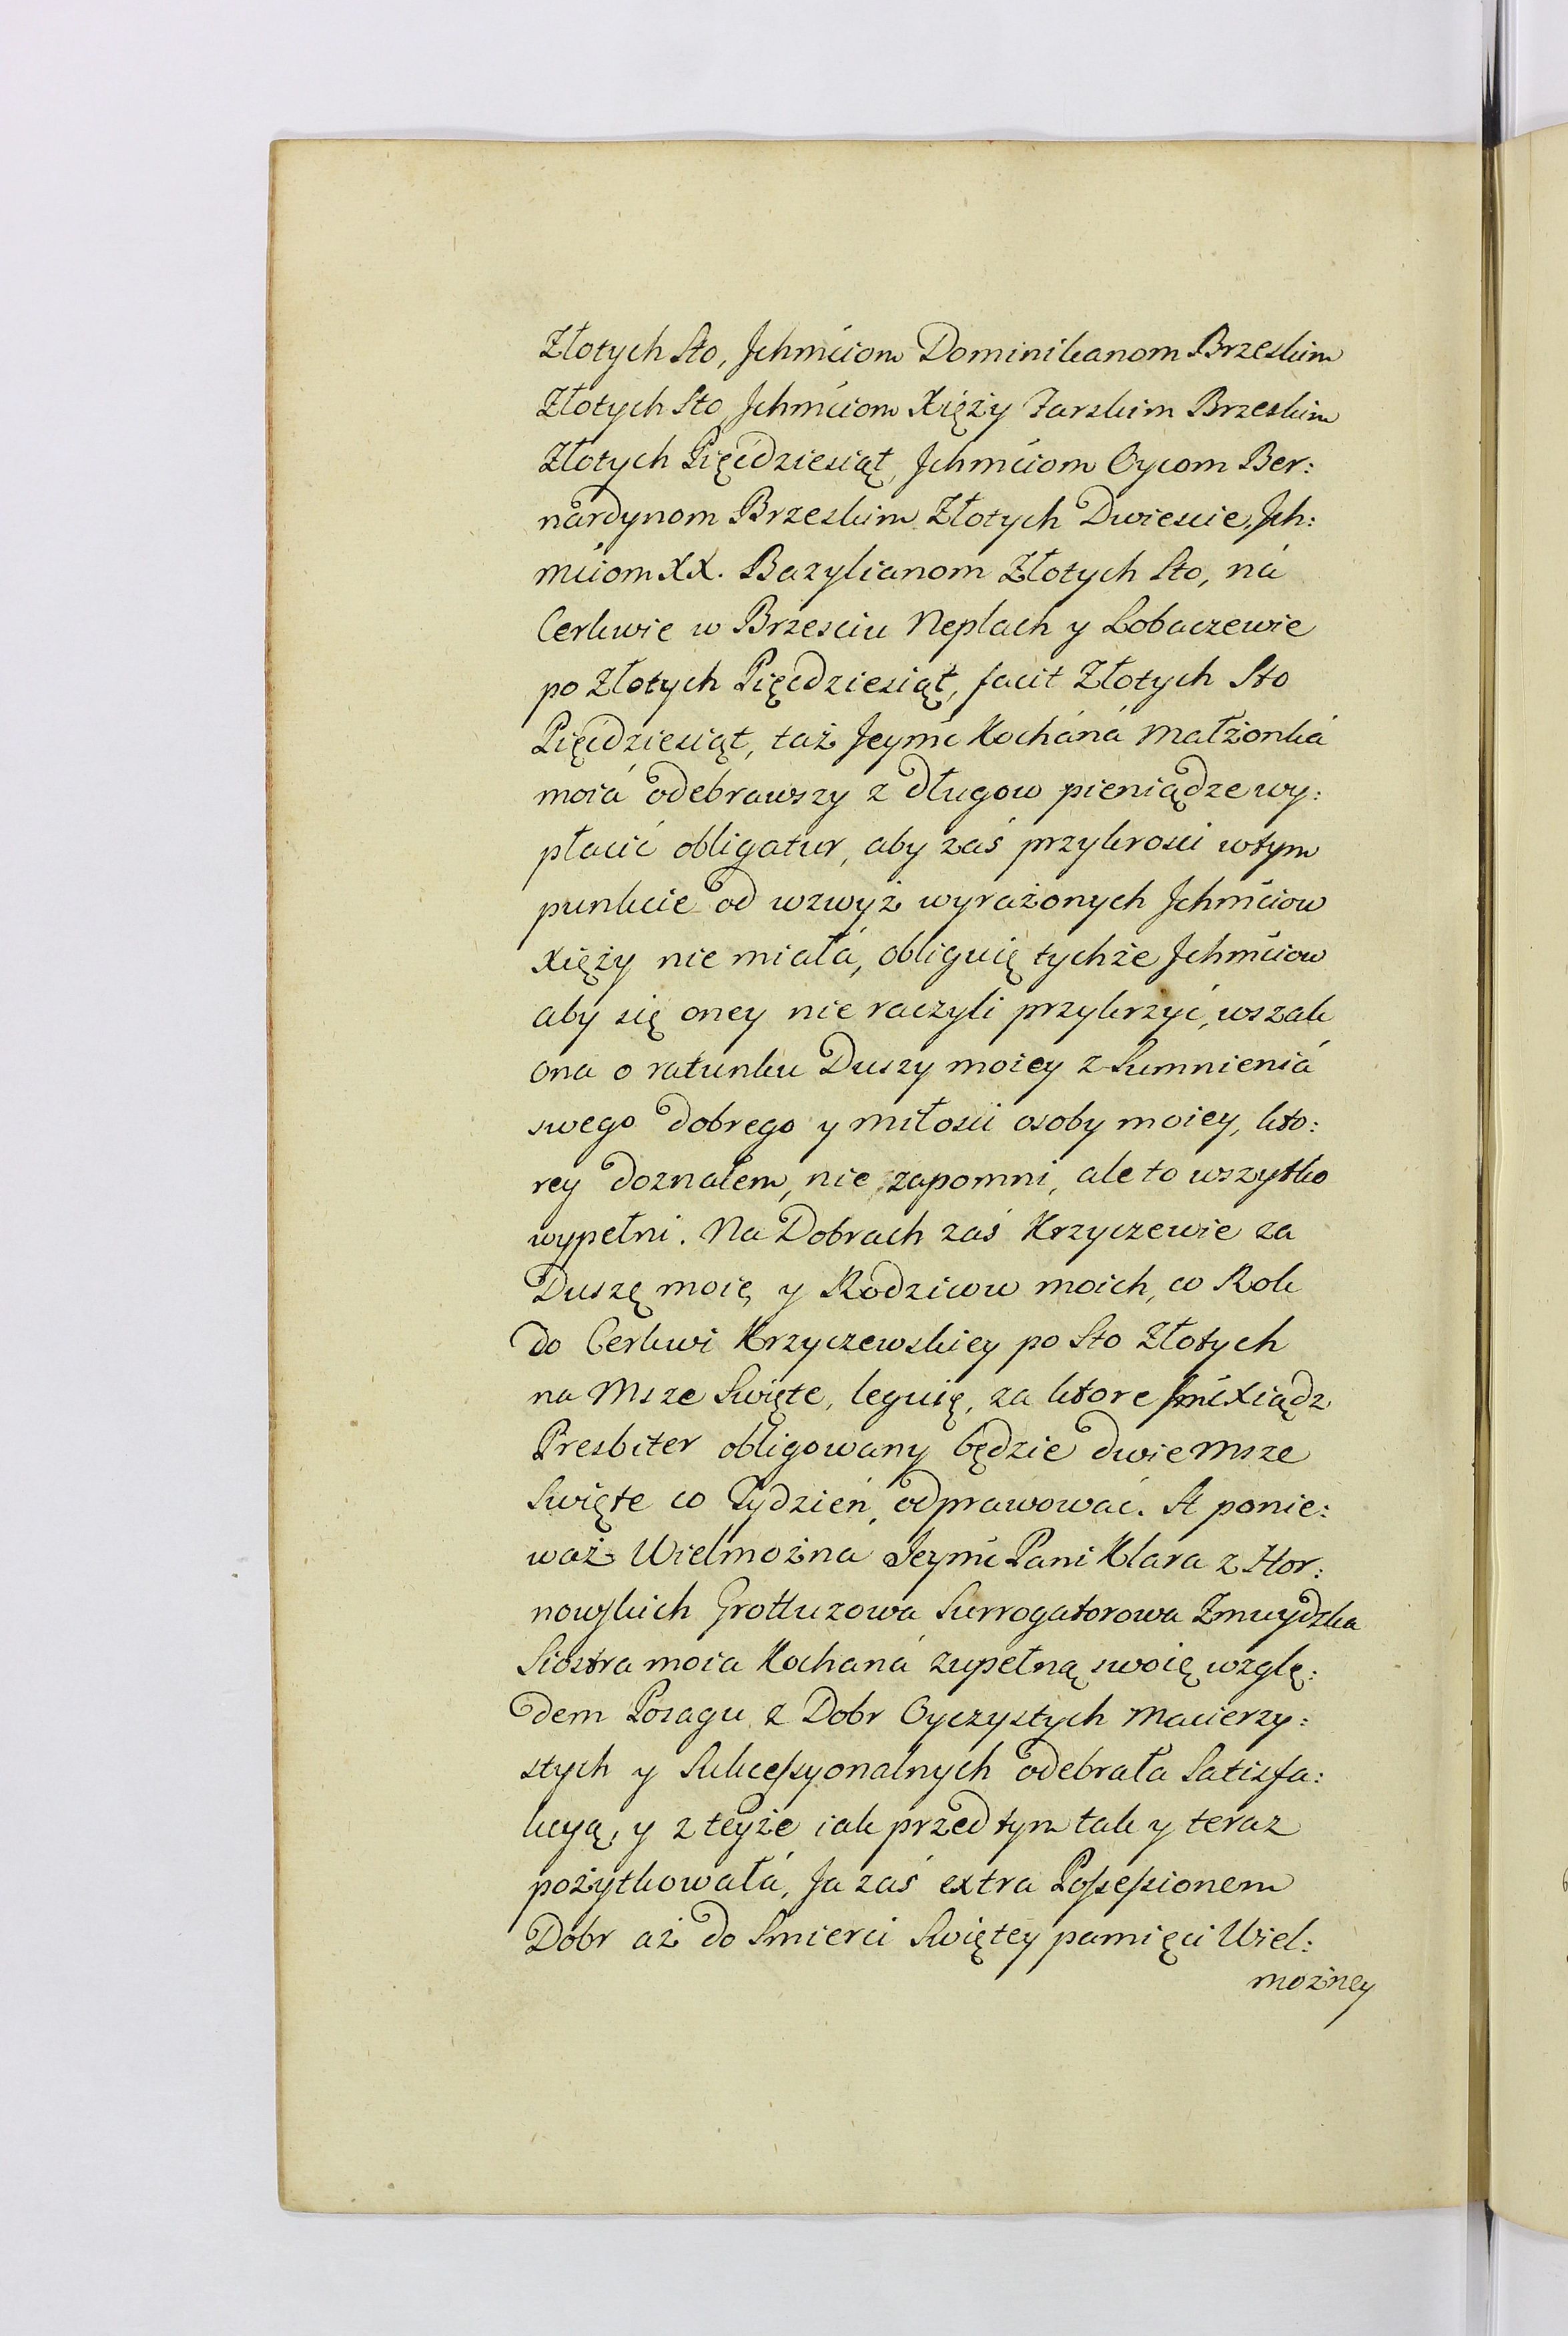 Złotych Sto, Jchmciom Dominikanom Brzeskim
Złotych Sto, Jchmciom Xięży Farskim Brzeskim
Złotych Pięćdziesiąt, Jchmciom Oycom Ber:
nardynom Brzeskim Złotych Dwiescie, Jch:
mciom XX. Bazylianom Złotych Sto, ná
Cerkwie w Brzesciu Neplach y Łobaczewie
po Złotych Pięcdziesiąt, facit Złotych Sto
Pięćdziesiąt, taż Jeymć Kocháná Małżonká
moiá odebrawszy z długow pieniądze wy:
płacić obligatur, aby zaś przykrosci wtym
punkcie od wzwyż wyrażonych Jchmciow
Xięży nie miałá, obliguię tychże Jchmciow
aby się oney nie raczyli przykrzyć, wszak
ona o ratunku Duszy moiey z Sumnieniá
swego dobrego y miłosci osoby moiey, kto:
rey doznałem, nie zapomni, ale to wszytko
wypełni. Na Dobrach zaś Krzyczewie za
Duszę moię y Rodzicow moich, co Rok
do Cerkwi Krzyczewskiey po Sto Złotych
na Msze Swięte, leguię, za ktore Jmć Xiądz
Presbiter obligowany będzie dwie Msze
Swięte co Tydzień odprawować. A ponie:
waż Wielmożná Jeymć Pani Klara z Hor:
nowskich Grottuzowa Surrogatorowa Zmuydzka
Siostra moia Kochaná zupełną swoię wzglę:
dem Posagu z Dobr Oyczystych Macierzy:
stych y Sukcessyonalnych odebrała Satisfa:
kcyą, y z teyże iak przedtym tak y teraz
pożytkowałá, Ja zaś extra Possessionem
Dobr aż do Smierci Swiętey pamięci Wiel:
możney